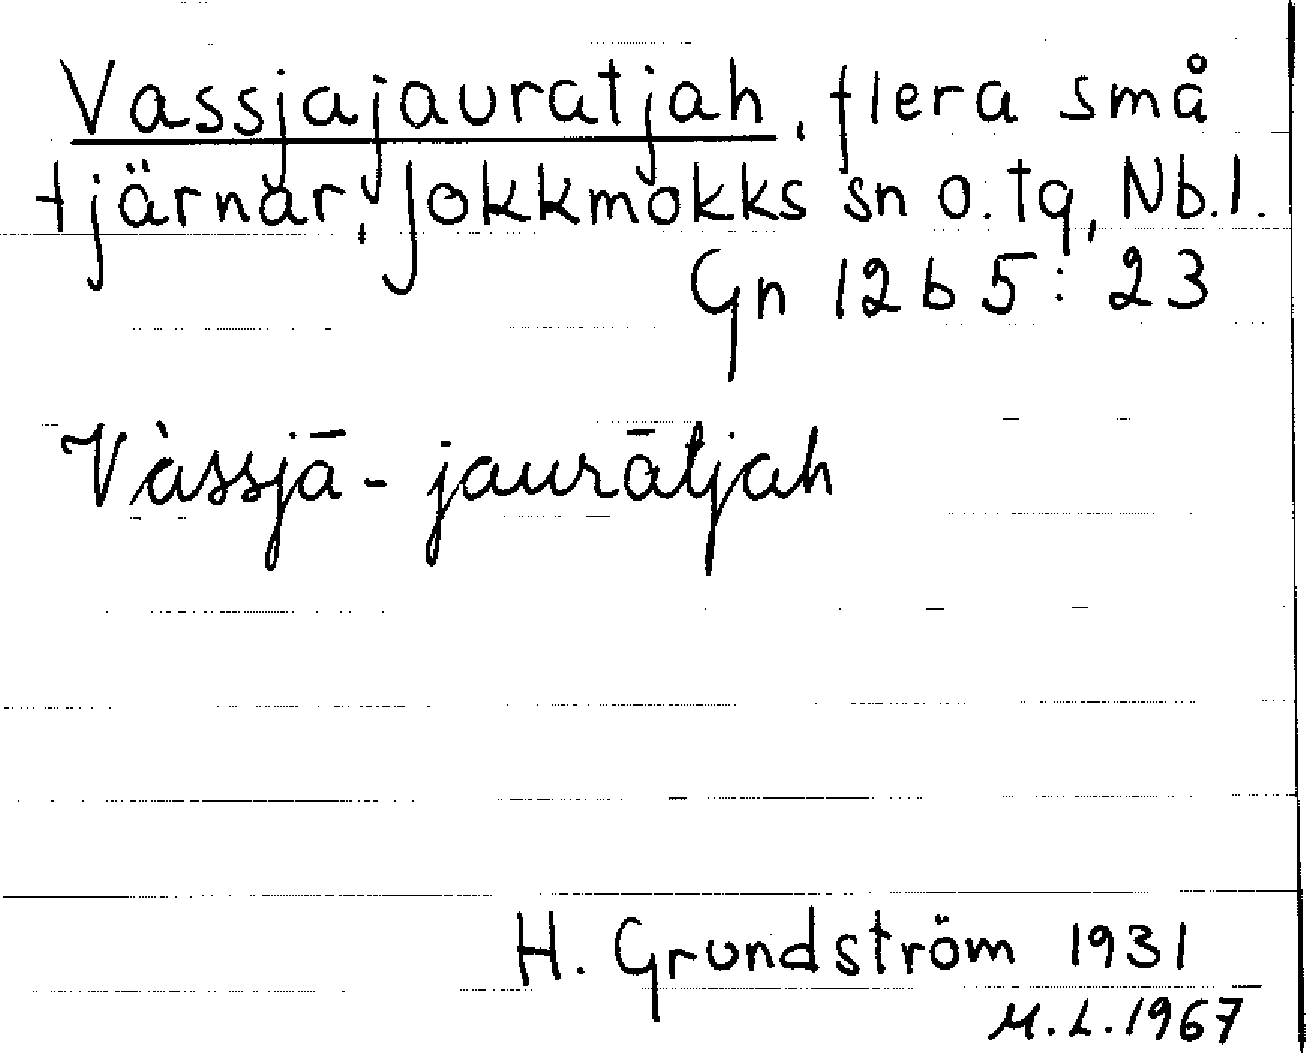 Vassjajauratjah, flera små
tjärnar, Jokkmokks sn o. tg, Nb.l.
Gn 12 b 5: 23
Vàssjā-jaurātjah
H. Grundström 1931
M.L. 1967